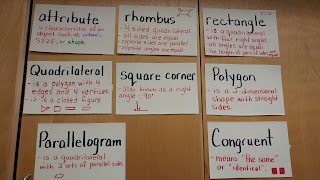 attribute
a characteristic of an
object such as colour,
size, or shape.
rhombus
- 4-sided quadrilateral
- all sides are equal
- opposite sides are parallel
- opposite angles are equal
rectangle
- is a quadrilateral
with four right angles
- all angles are equal
- the length of parallel sides are
Quadrilateral
- is a polygon with 4
edges and 4 vertices.
- it is a closed figure
Square corner
- Also known as a right
angle - 90°
Polygon
- is a 2-dimensional
shape with straight
sides.
Parallelogram
- is a quadrilateral
with 2 sets of parallel sides
Congruent
- means "the same"
or "identical".